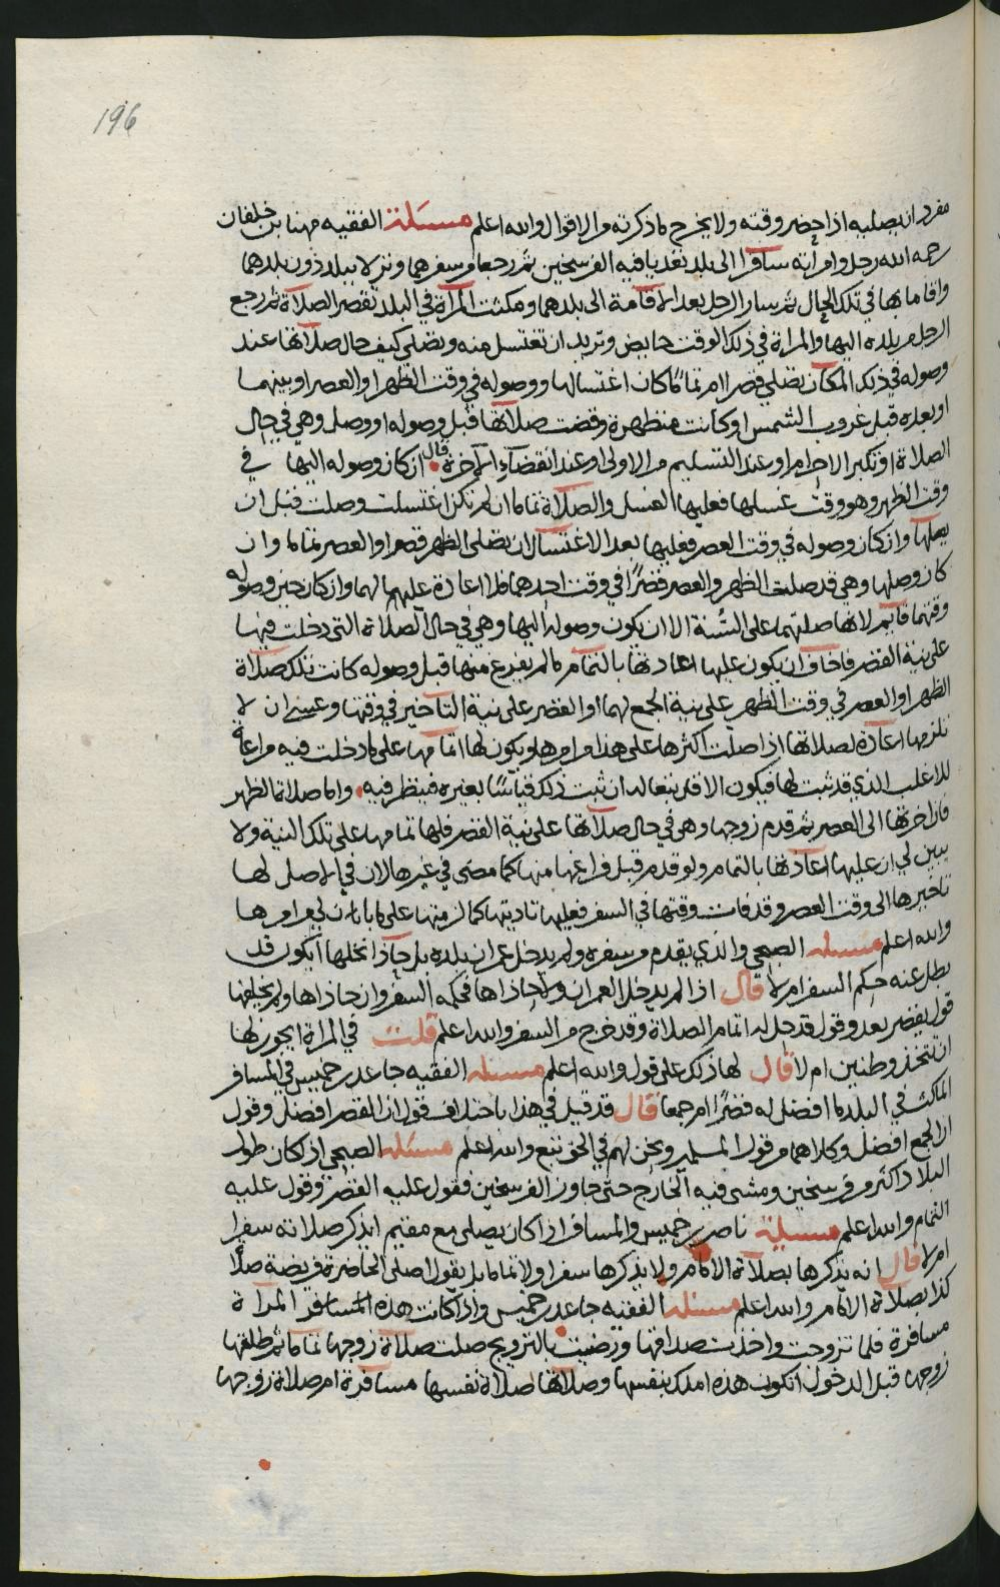 196
مفرد ان يصليه اذا حضر وقته ولا يخرج ما ذكرته من الاقوال والله اعلم مسئلة الفقيه مهنا بن خلفان
رحمه الله رجل وامرأته سافرا الى بلد تعديا فيه الفرسخين ثم رجعا من سفرهما ونزلا ببلد دون بلدهما
واقاما بها في تلك الحال ثم سار الرجل بعد الاقامة الى بلدهما ومكثت المرأة في البلد تقصر الصلاة ثم رجع
الرجل من بلده اليها والمراة في ذلك الوقت حايض وتريد ان تغتسل منه وتصلي كيف حال صلاتها عند
وصوله في ذلك المكان تصلي قصرا ام تماما كان اغتسالها ووصوله في وقت الظهر او العصر او بينهما
او بعده قبل غروب الشمس او كانت متطهرة وقضت صلاتها قبل وصوله او وصل وهي في حال
الصلاة او تكبير الاحرام او عند التسليم من الاولى او عند انقضآء الآخرة قال ان كان وصوله اليها في
وقت الظهر وهو وقت غسلها فعليها الغسل والصلاة تماما ان لم تكن اغتسلت وصلت قبل ان
يصلها وان كان وصوله في وقت العصر فعليها بعد الاغتسال ان تصلي الظهر قصرا والعصر تماما وان
كان وصلها وهي قد صلت الظهر والعصر قصرًا في وقت احدهما فلا اعادة عليها لهما وان كان حين وصوله
وقتهما قايم لانها صلتهما على السُّنة الا ان يكون وصوله اليها وهي في حال الصلاة التي دخلت فيها
على نية القصر فاخاف ان يكون عليها اعادتها بالتمام ما لم يفرغ منها قبل وصوله كانت تلك صلاة
الظهر او العصر في وقت الظهر على نية الجمع لهما او القصر على نية التآخير في وقتها وعسى ان لا
تلزمها اعادة لصلاتها اذا صلت اكثرها على هذا من امرها ويكون لها اتمامها على ما دخلت فيه مراعاة
للاغلب الذي قد ثبت لها فيكون الاقل تبعا له ان ثبت ذلك قياسًا بغيره فينظر فيه واما صلاة الظهر
فان اخرتها الى العصر ثم قدم زوجها وهي في حال صلاتها على نية القصر فلها تمامها على تلك النية ولا
يبين لي ان عليها اعادتها بالتمام ولو قدم قبل فراغها منها كما مضى في غيرها لان في الاصل لها
تاخيرها الى وقت العصر وقد فات وقتها في السفر فعليها تاديتها كما لزمتها على ما بان لي من امرها
والله اعلم مسئله الصبحي والذي يقدم من سفره ولم يدخل عمران بلده بل حاذا نخلها ايكون قد
بطل عنه حكم السفر ام لا قال اذا لم يدخل العمران ولا حاذاها فحكمه السفر وان حاذاها ولم يخلفها
قول يقصر بعد وقول قد حل له اتمام الصلاة وقد خرج من السفر والله اعلم قلت في المراة ايجوز لها
ان تتخذ وطنين ام لا قال لها ذلك على قول والله اعلم مسئله الفقيه جاعد بن خميس في المسافر
الماكث في البلد ما افضل له قصرًا ام جمعا قال قد قيل في هذا باختلاف فقول ان القصر افضل وقول
ان الجمع افضل وكلاهما من قول المسلمين ونحن لهم في الحق تبع والله اعلم مسئله الصبحي اذا كان طول
البلاد اكثر من فرسخين ومشى فيه الخارج حتى جاوز الفرسخين فقول عليه القصر وقول عليه
التمام والله اعلم مسئلة ناصر بن خميس والمسافر اذا كان يصلي مع مقيم ايذكر صلاته سفرا
ام لا قال انه يذكرها بصلاة الامام ولا يذكرها سفرا ولا تماما بل يقول اصلي الحاضرة فريضة صلاة
كذا بصلاة الامام والله اعلم مسئله الفقيه جاعد بن خميس واذا كانت هذه المسافر المرأة
مسافرة فلما تزوجت واخذت صداقها ورضيت بالتزويج صلت صلاة زوجها تماما ثم طلقها
زوجها قبل الدخول اتكون هذه املك بنفسها وصلاتها صلاة نفسها مسافرة ام صلاة زوجها